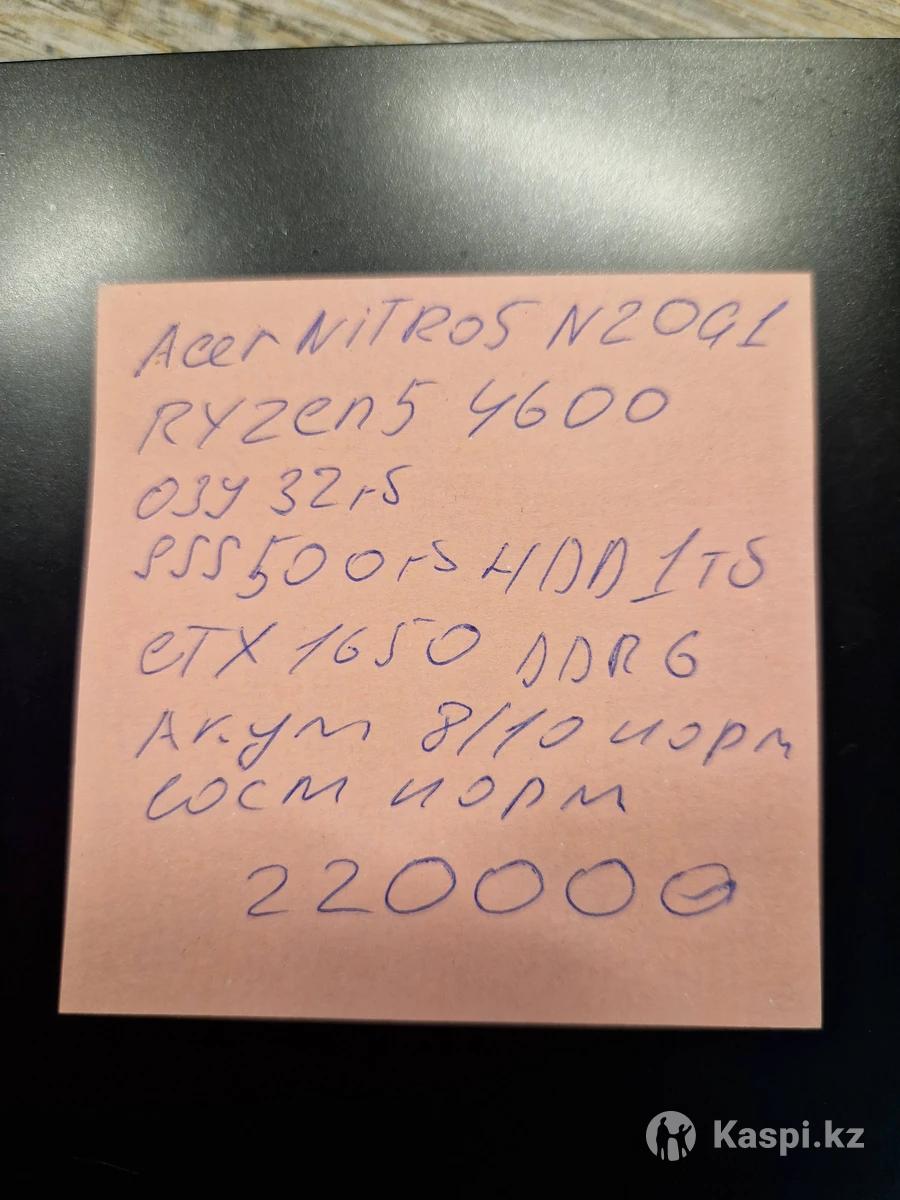 Acer NiTRO5 N20G1
RYZen5 4600
ОЗУ 32гб
SSS 500гб HDD 1Тб
GTX 1650 DDR6
Акум 8/10 норм
сост норм
220000
Kaspi.kz